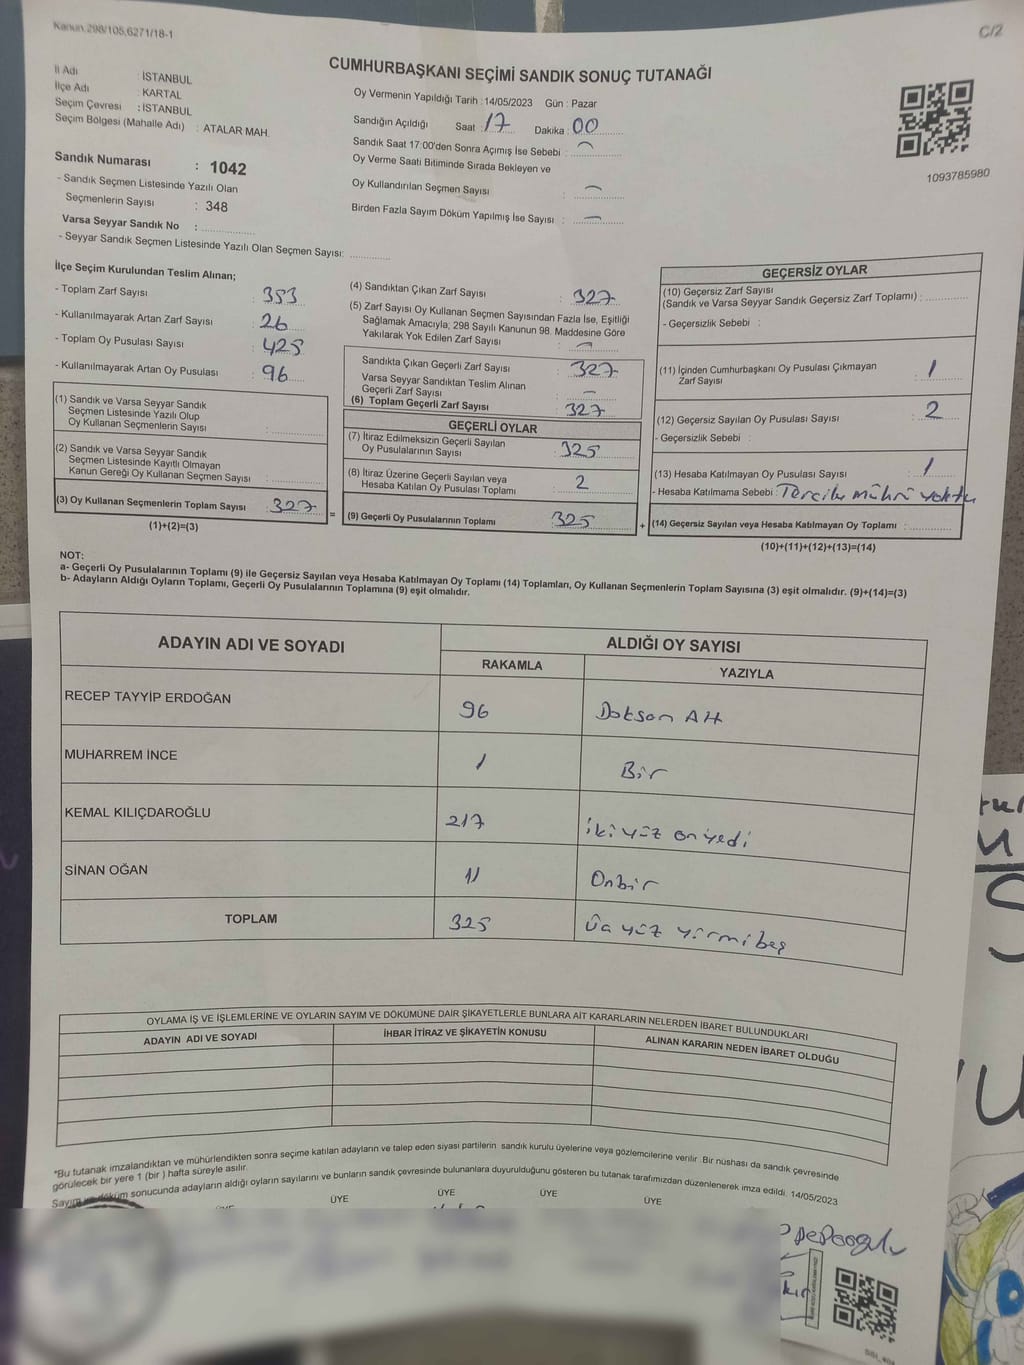 Kanun.298/105,6271/18-1
C/2
CUMHURBAŞKANI SEÇİMİ SANDIK SONUÇ TUTANAĞI
İl Adı : İSTANBUL
İlçe Adı : KARTAL
Seçim Çevresi : İSTANBUL
Seçim Bölgesi (Mahalle Adı) : ATALAR MAH.
Sandık Numarası : 1042
- Sandık Seçmen Listesinde Yazılı Olan
Seçmenlerin Sayısı : 348
Varsa Seyyar Sandık No :
- Seyyar Sandık Seçmen Listesinde Yazılı Olan Seçmen Sayısı:
Oy Vermenin Yapıldığı Tarih :14/05/2023 Gün : Pazar
Sandığın Açıldığı Saat : 17 Dakika : 00
Sandık Saat 17:00'den Sonra Açımış İse Sebebi : —
Oy Verme Saati Bitiminde Sırada Bekleyen ve
Oy Kullandırılan Seçmen Sayısı : —
Birden Fazla Sayım Döküm Yapılmış İse Sayısı : —
1093785980
İlçe Seçim Kurulundan Teslim Alınan;
- Toplam Zarf Sayısı : 353
- Kullanılmayarak Artan Zarf Sayısı : 26
- Toplam Oy Pusulası Sayısı : 425
- Kullanılmayarak Artan Oy Pusulası : 96
(1) Sandık ve Varsa Seyyar Sandık
Seçmen Listesinde Yazılı Olup
Oy Kullanan Seçmenlerin Sayısı :
(2) Sandık ve Varsa Seyyar Sandık
Seçmen Listesinde Kayıtlı Olmayan
Kanun Gereği Oy Kullanan Seçmen Sayısı :
(3) Oy Kullanan Seçmenlerin Toplam Sayısı : 327
(1)+(2)=(3)
=
(4) Sandıktan Çıkan Zarf Sayısı : 327
(5) Zarf Sayısı Oy Kullanan Seçmen Sayısından Fazla İse, Eşitliği
Sağlamak Amacıyla; 298 Sayılı Kanunun 98. Maddesine Göre
Yakılarak Yok Edilen Zarf Sayısı : —
Sandıkta Çıkan Geçerli Zarf Sayısı : 327
Varsa Seyyar Sandıktan Teslim Alınan
Geçerli Zarf Sayısı : —
(6) Toplam Geçerli Zarf Sayısı : 327
GEÇERLİ OYLAR
(7) İtiraz Edilmeksizin Geçerli Sayılan
Oy Pusulalarının Sayısı : 325
(8) İtiraz Üzerine Geçerli Sayılan veya
Hesaba Katılan Oy Pusulası Toplamı : 2
(9) Geçerli Oy Pusulalarının Toplamı : 325
+
GEÇERSİZ OYLAR
(10) Geçersiz Zarf Sayısı
(Sandık ve Varsa Seyyar Sandık Geçersiz Zarf Toplamı) :
- Geçersizlik Sebebi :
(11) İçinden Cumhurbaşkanı Oy Pusulası Çıkmayan
Zarf Sayısı : 1
(12) Geçersiz Sayılan Oy Pusulası Sayısı : 2
- Geçersizlik Sebebi :
(13) Hesaba Katılmayan Oy Pusulası Sayısı : 1
- Hesaba Katılmama Sebebi : Tercih mührü yoktu
(14) Geçersiz Sayılan veya Hesaba Katılmayan Oy Toplamı :
(10)+(11)+(12)+(13)=(14)
NOT:
a- Geçerli Oy Pusulalarının Toplamı (9) ile Geçersiz Sayılan veya Hesaba Katılmayan Oy Toplamı (14) Toplamları, Oy Kullanan Seçmenlerin Toplam Sayısına (3) eşit olmalıdır. (9)+(14)=(3)
b- Adayların Aldığı Oyların Toplamı, Geçerli Oy Pusulalarının Toplamına (9) eşit olmalıdır.
ADAYIN ADI VE SOYADI ALDIĞI OY SAYISI
RAKAMLA YAZIYLA
RECEP TAYYİP ERDOĞAN 96 Doksan Altı
MUHARREM İNCE 1 Bir
KEMAL KILIÇDAROĞLU 217 iki yüz onyedi
SİNAN OĞAN 11 Onbir
TOPLAM 325 Üç yüz yirmibeş
OYLAMA İŞ VE İŞLEMLERİNE VE OYLARIN SAYIM VE DÖKÜMÜNE DAİR ŞİKAYETLERLE BUNLARA AİT KARARLARIN NELERDEN İBARET BULUNDUKLARI
ADAYIN ADI VE SOYADI İHBAR İTİRAZ VE ŞİKAYETİN KONUSU ALINAN KARARIN NEDEN İBARET OLDUĞU
*Bu tutanak imzalandıktan ve mühürlendikten sonra seçime katılan adayların ve talep eden siyasi partilerin sandık kurulu üyelerine veya gözlemcilerine verilir. Bir nüshası da sandık çevresinde
görülecek bir yere 1 (bir) hafta süreyle asılır.
Sayım ve döküm sonucunda adayların aldığı oyların sayılarını ve bunların sandık çevresinde bulunanlara duyurulduğunu gösteren bu tutanak tarafımızdan düzenlenerek imza edildi. 14/05/2023
ÜYE ÜYE ÜYE ÜYE